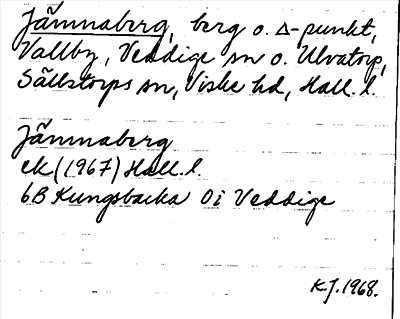 Jämnaberg, berg o. Δ-punkt,
Vallby, Veddige sn o. Ulvatorp,
Sällstorps sn, Viske hd, Hall. l.
Jämnaberg
ek (1967) Hall. l.
6B Kungsbacka 0i Veddige
K.J. 1968.